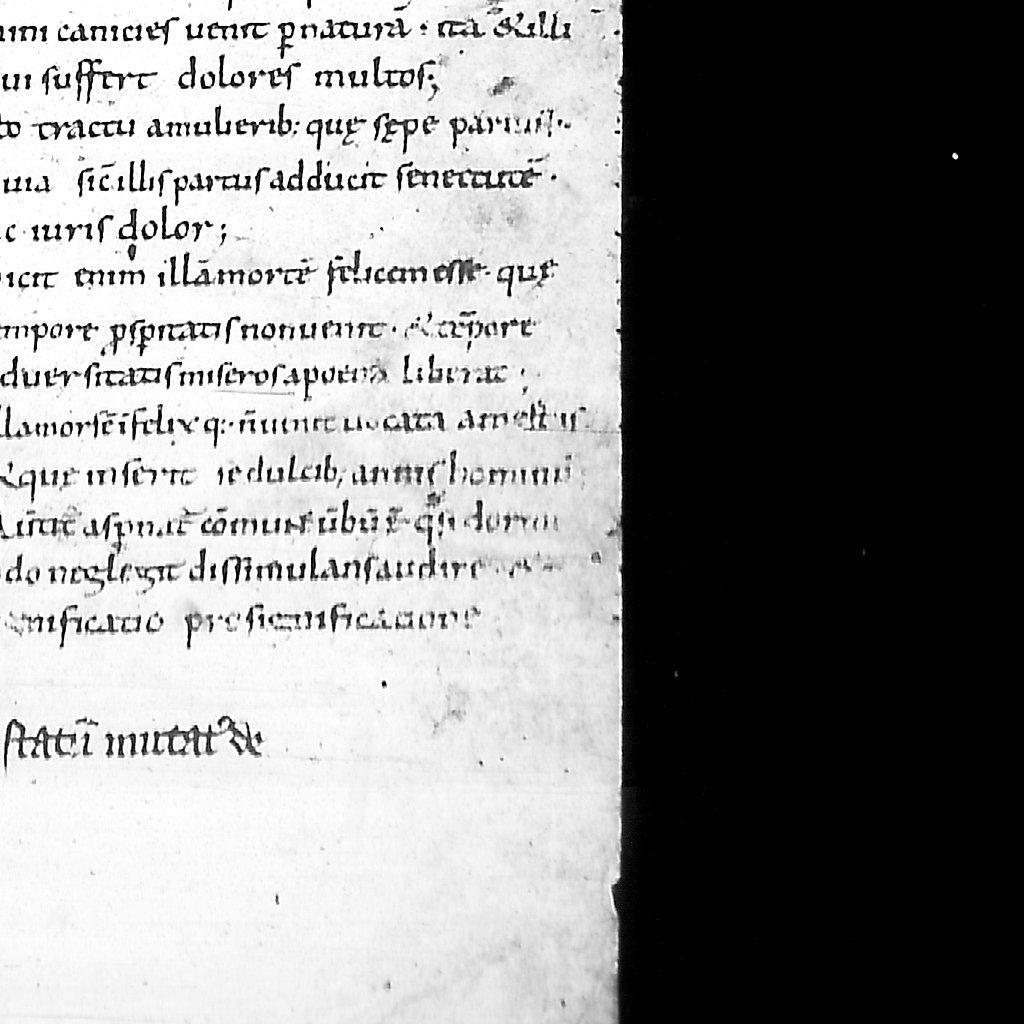 canicies uenit ꝑ naturā · ita & illi
ui suffert dolores multos;
tractu a mulierib; quę sępe
uia sic̄ illis partus adducit senectutē ·
iuris dolor;
icit enim illā mortē felicem esse · quę
mpore ꝓsꝑitatis non uenit · & tēpore
duersitatis miseros a poena liberat ;
lla mors ē īfelix q: n̄ uenit uocata a męstis
&quę inserit se dulcib; annis hominū
cōmunis
do neglegit dissimulans audire
nificatio pro significatione
statī mutat᷑ de